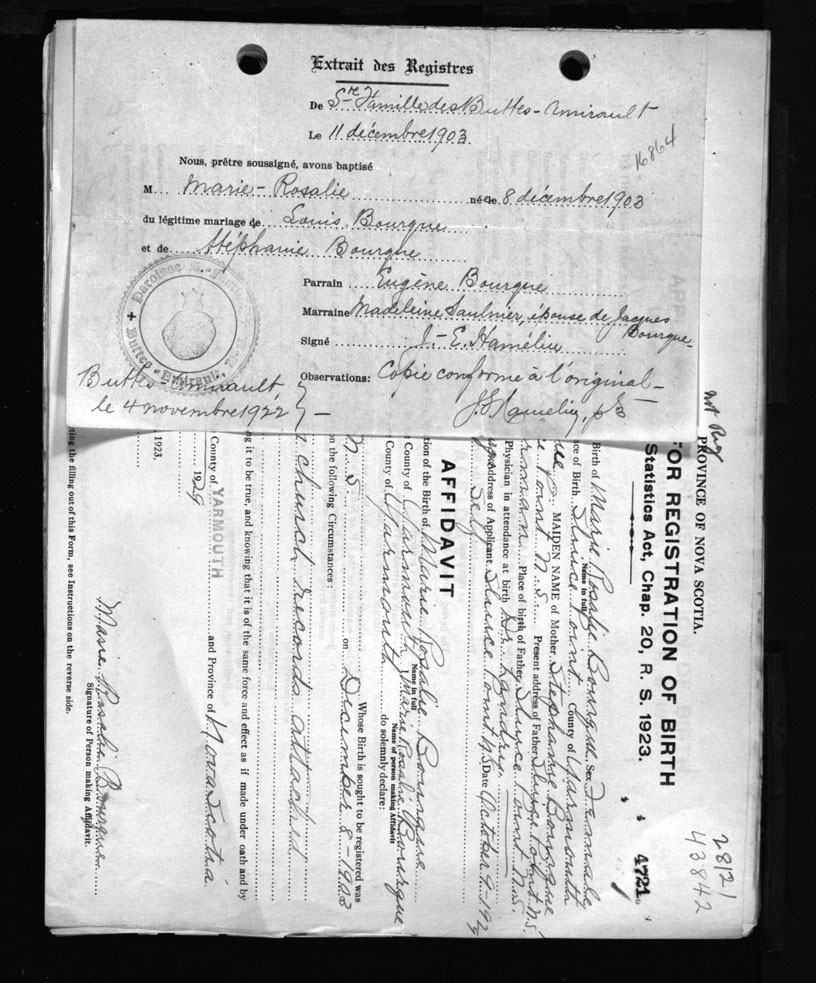 Extrait des Registres
De Ste Famille des Buttes-Amirault
Le 11 décembre 1903.
16864
Nous, prêtre soussigné, avons baptisé
M... Marie-Rosalie née le 8 décembre 1903
du légitime mariage de Louis Bourque
et de Stéphanie Bourque
Parrain Eugène Bourque
Marraine Madeleine Saulnier, épouse de Jacques Bourque-
Signé J.-E. Hamelin
Observations: Copie conforme à l'original-
Buttes-Amirault,
le 4 novembre 1922 } -
Paroisse
Buttes-Amirault,
PROVINCE OF NOVA SCOTIA.
FOR REGISTRATION OF BIRTH
Statistics Act, Chap. 20, R. S. 1923.
4721
28121
43842
Birth of Marie Rosalie Bourque Sex Female
Name in full
ce of Birth Sluice Point County of Yarmouth
MAIDEN NAME of Mother Stephanie Bourque
e Point N.S. Present address of Father Sluice Point N.S.
Place of birth of Father Sluice Point N.S.
Physician in attendance at birth Dr. Landry
Address of Applicant Sluice Point N.S. Date October 9-192
Self
AFFIDAVIT
tion of the Birth of Marie Rosalie Bourque
Name in full
County of Yarmouth Marie Rosalie Bourque
Name of person making Affidavit
County of Yarmouth do solemnly declare:
Whose Birth is sought to be registered was
N. S. on December 8-1903
on the following Circumstances:
church records attached
ng it to be true, and knowing that it is of the same force and effect as if made under oath and by
County of YARMOUTH and Province of Nova Scotia
1929
1923,
Marie Rosalie Bourque
Signature of Person making Affidavit.
ting the filling out of this Form, see Instructions on the reverse side.